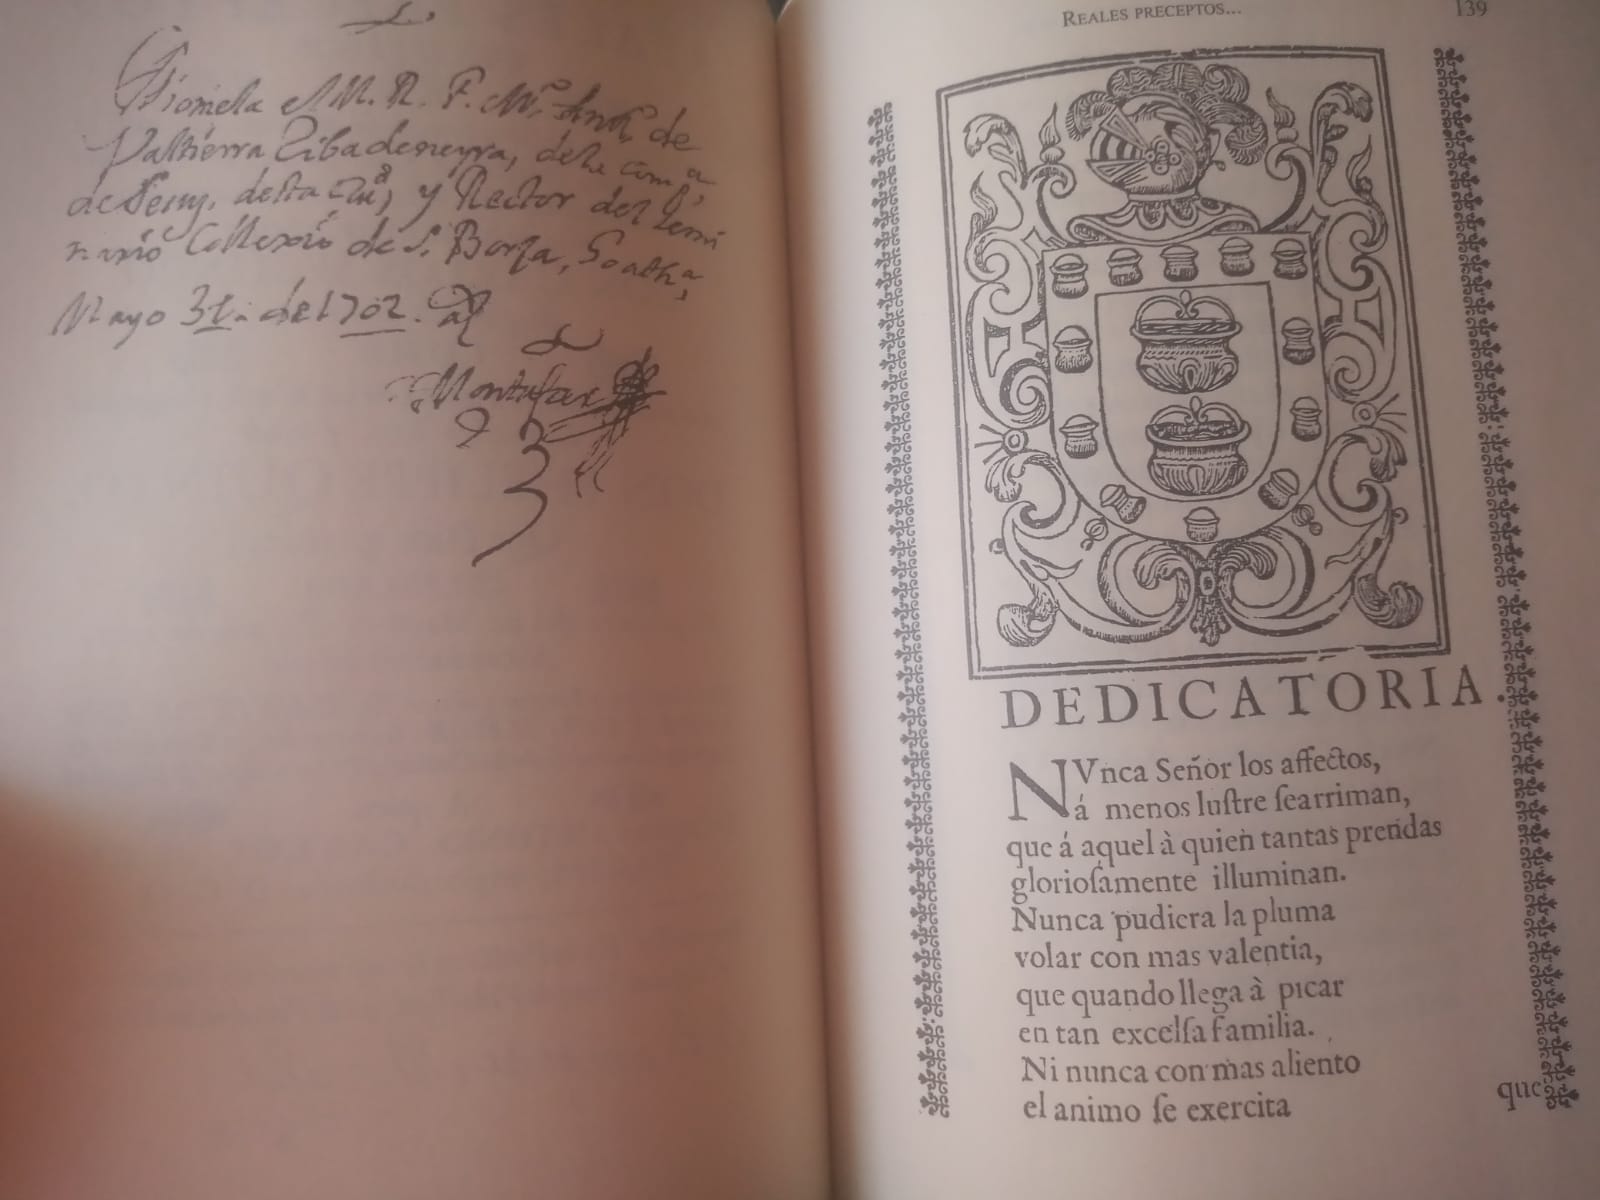 Diomela el M. R. P. Mº. Antº de
Valtierra Ribadeneyra, dela comp.ª
de Jesus, desta Ciuᵈ, y Rector del semi
nario Collexio de S. Borja,
Mayo 31. de 1702.
Montufar
REALES PRECEPTOS...
139
DEDICATORIA.
NVnca Señor los affectos,
á menos luſtre ſearriman,
que á aquel à quien tantas prendas
glorioſamente illuminan.
Nunca pudiera la pluma
volar con mas valentia,
que quando llega à picar
en tan excelſa familia.
Ni nunca con mas aliento
el animo ſe exercita
que